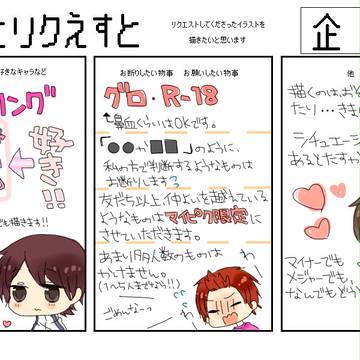 とりくえすと
リクエストしてくださったイラストを
描きたいと思います
企
好きなキャラなど
リング
好き!!
でも描きます!!
お断りしたい物事 お願いしたい物事
グロ・R-18
↑鼻血くらいはOKです。
「●●か■■」のように、
私の方で判断するようなものは
お断りします
友だち以上、仲よしを越えている
ようなものはマイピク限定に
させていただきます。
あまり多人数のものは
かけません。
(1〜5人までなら!!)
ごめんなっ
他
描くのは、お
たり…きり
シチュエー
あるとたすか
マイナーでも
メジャーでも、
なんでもどう